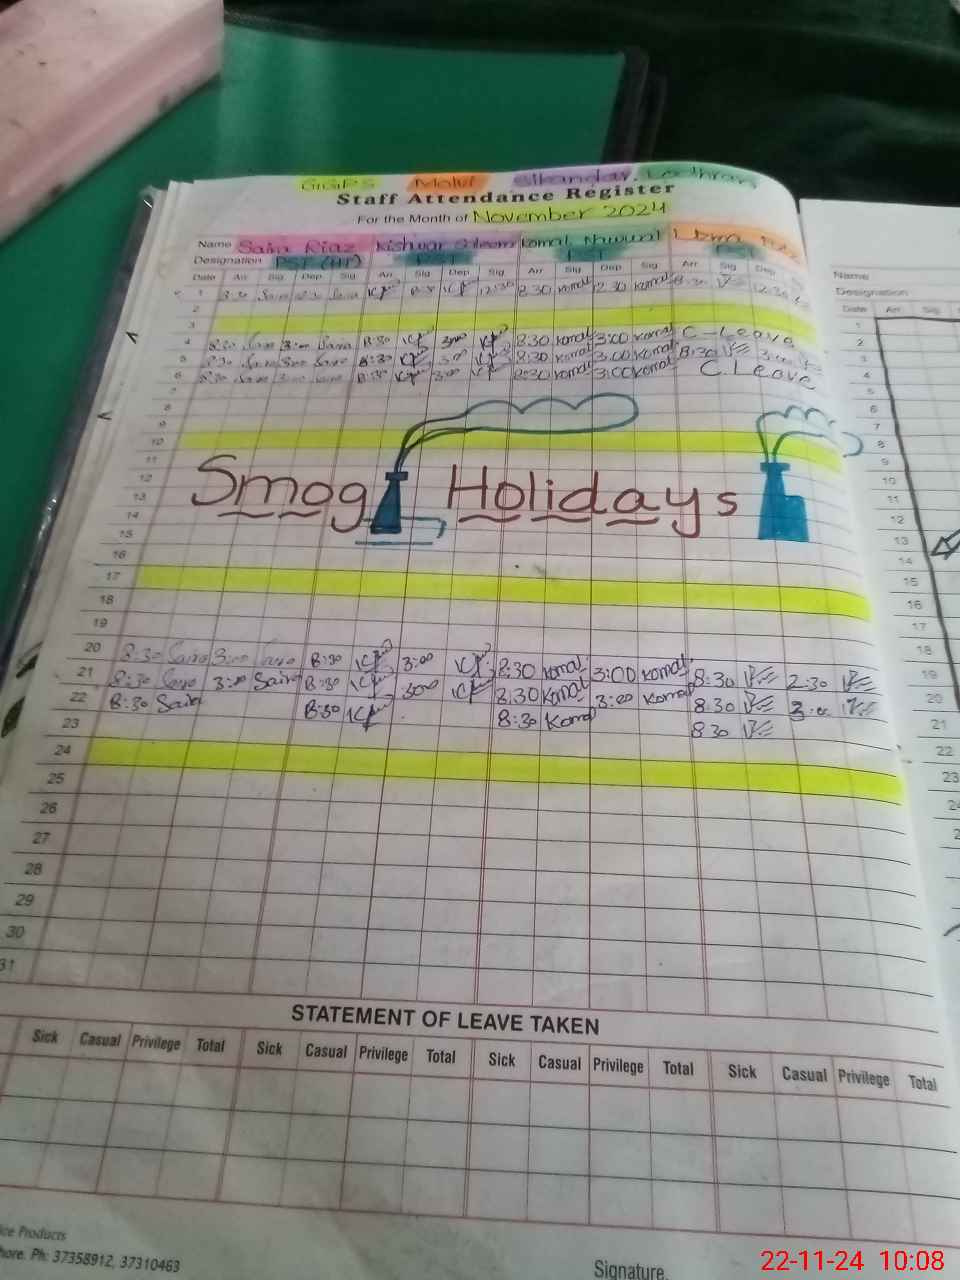 GGPS Molvi Sikandar, Lodhran
Staff Attendance Register
For the Month of November 2024
Name Saira Riaz Kishwar Saleem Komal Nawaal Uzma
Designation PST (HT) PST PST PST
Date Arr Sig Dep Sig Arr Sig Dep Sig Arr Sig Dep Sig Arr Sig Dep
1 8:30 Saira 12:30 Saira 8:30 12:30 8:30 Komal 12:30 Komal 8:30 12:30
2
3
4 8:30 Saira 3:00 Saira 8:30 3:00 8:30 Komal 3:00 Komal C-Leave
5 8:30 Saira 3:00 Saira 8:30 3:00 8:30 Komal 3:00 Komal 8:30 3:00
6 8:30 Saira 3:00 Saira 8:30 3:00 8:30 Komal 3:00 Komal C.Leave
7
8
9
10
11
12
Smog Holidays
13
14
15
16
17
18
19
20 8:30 Saira 3:00 Saira 8:30 3:00 8:30 Komal 3:00 Komal 8:30 2:30
21 8:30 Saira 3:00 Saira 8:30 3:00 8:30 Komal 3:00 Komal 8:30 3:00
22 8:30 Saira 8:30 8:30 Komal 8:30
23
24
25
26
27
28
29
30
31
STATEMENT OF LEAVE TAKEN
Sick Casual Privilege Total Sick Casual Privilege Total Sick Casual Privilege Total Sick Casual Privilege Total
Products
Ph: 37358912, 37310463
Signature.
Name
Designation
Date Arr Sig
1
2
3
4
5
6
7
8
9
10
11
12
13
14
15
16
17
18
19
20
21
22
23
22-11-24 10:08